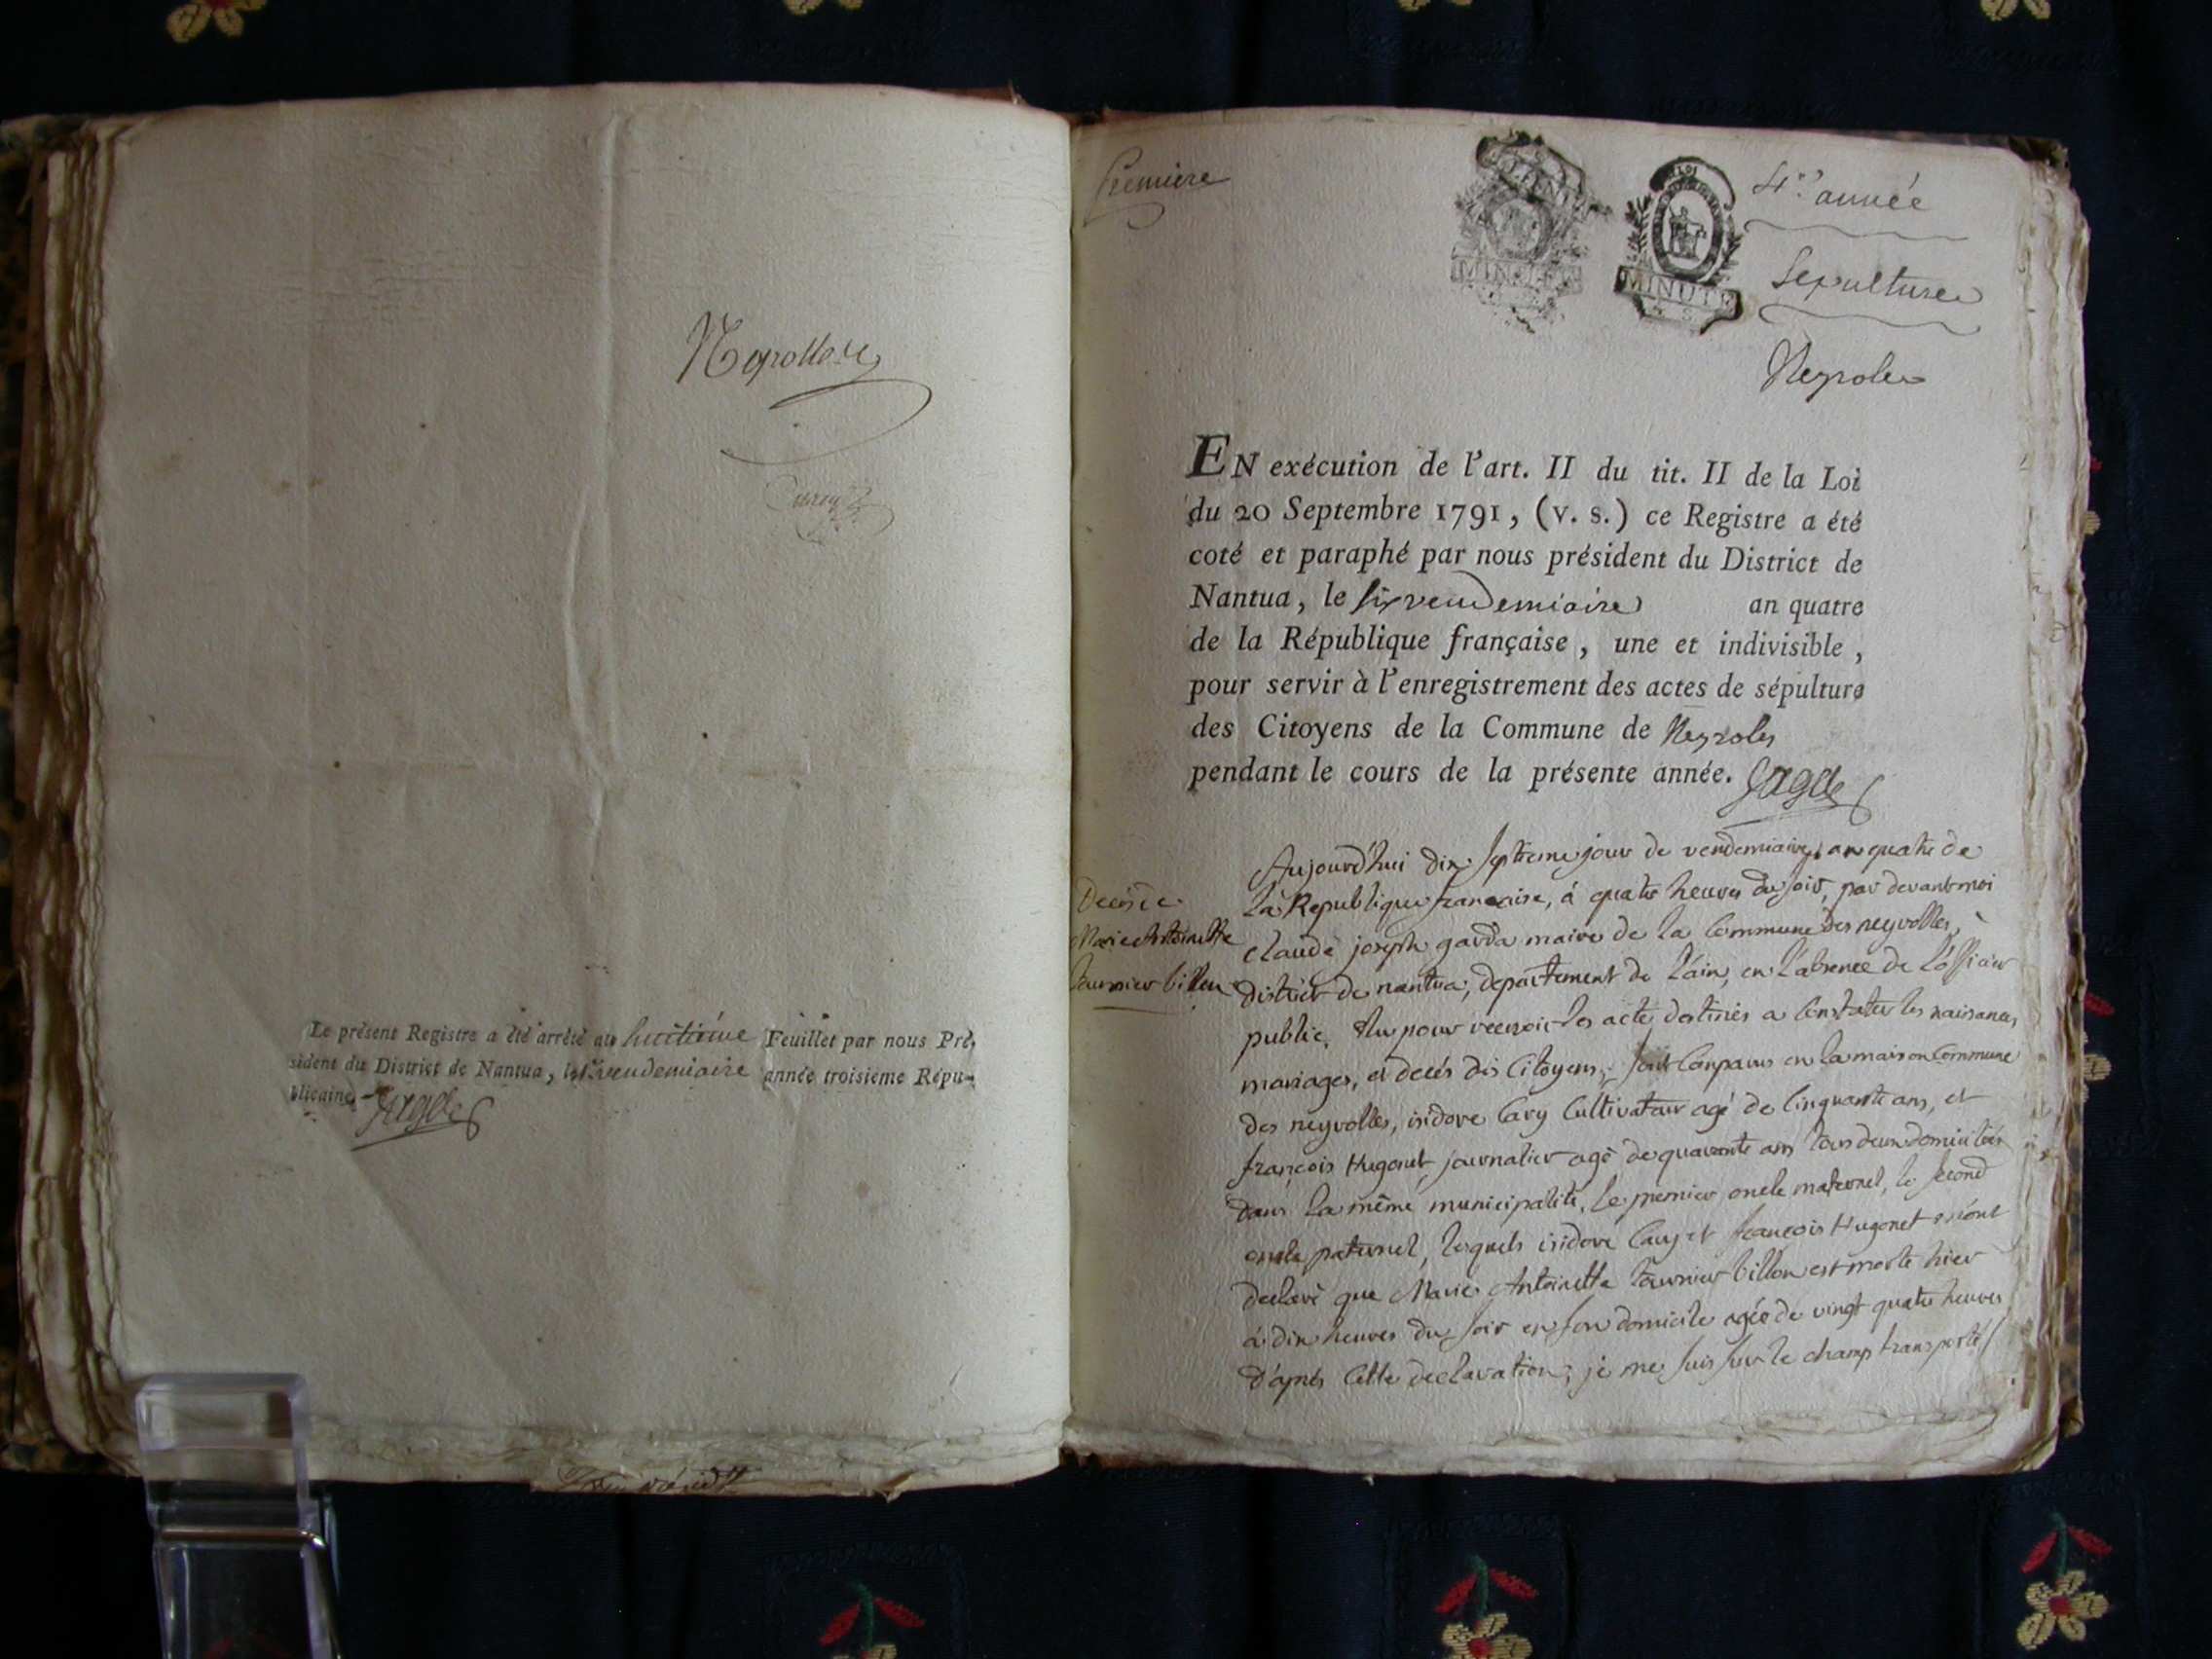 Le présent Registre a été arrêté au huitieme Feuillet par nous Pré-
sident du District de Nantua, le vendemiaire année troisieme Répu-
blicaine.
Premiere
4e année
Sepulture
MINUTE
MINUTE
Neyroles
EN exécution de l'art. II du tit. II de la Loi
du 20 Septembre 1791, (v. s.) ce Registre a été
coté et paraphé par nous président du District de
Nantua, le six vendemiaire an quatre
de la République française, une et indivisible,
pour servir à l'enregistrement des actes de sépulture
des Citoyens de la Commune de Neyroles
pendant le cours de la présente année.
Decés de
Marie Antoinette
tournier billon
Aujourd'hui dix septieme jour de vendemiaire, an quatre de
la Republique francaise, á quatre heures du soir, par devant moi
claude joseph garda maire de la Commune des neyrolles,
district de nantua, departement de l'ain, en l'absence de l'officier
public, élu pour recevoir les acte destinés a Constater les naissances,
mariages, et decés des Citoyens, sont Comparus en la maison Commune
des neyrolles, isidore Cary Cultivateur agé de Cinquante ans, et
françois Hugonet journalier agé de quarante ans tous deux domiciliés
dans la même municipalité, le premier oncle maternel, le second
oncle paternel, lesquels isidore Cary et francois Hugonet m'ont
declaré que Marie Antoinette tournier billon est morte hier
á dix heures du soir en son domicile agée de vingt quatre heures
d'aprés Cette declaration, je me suis sur le champ transporté